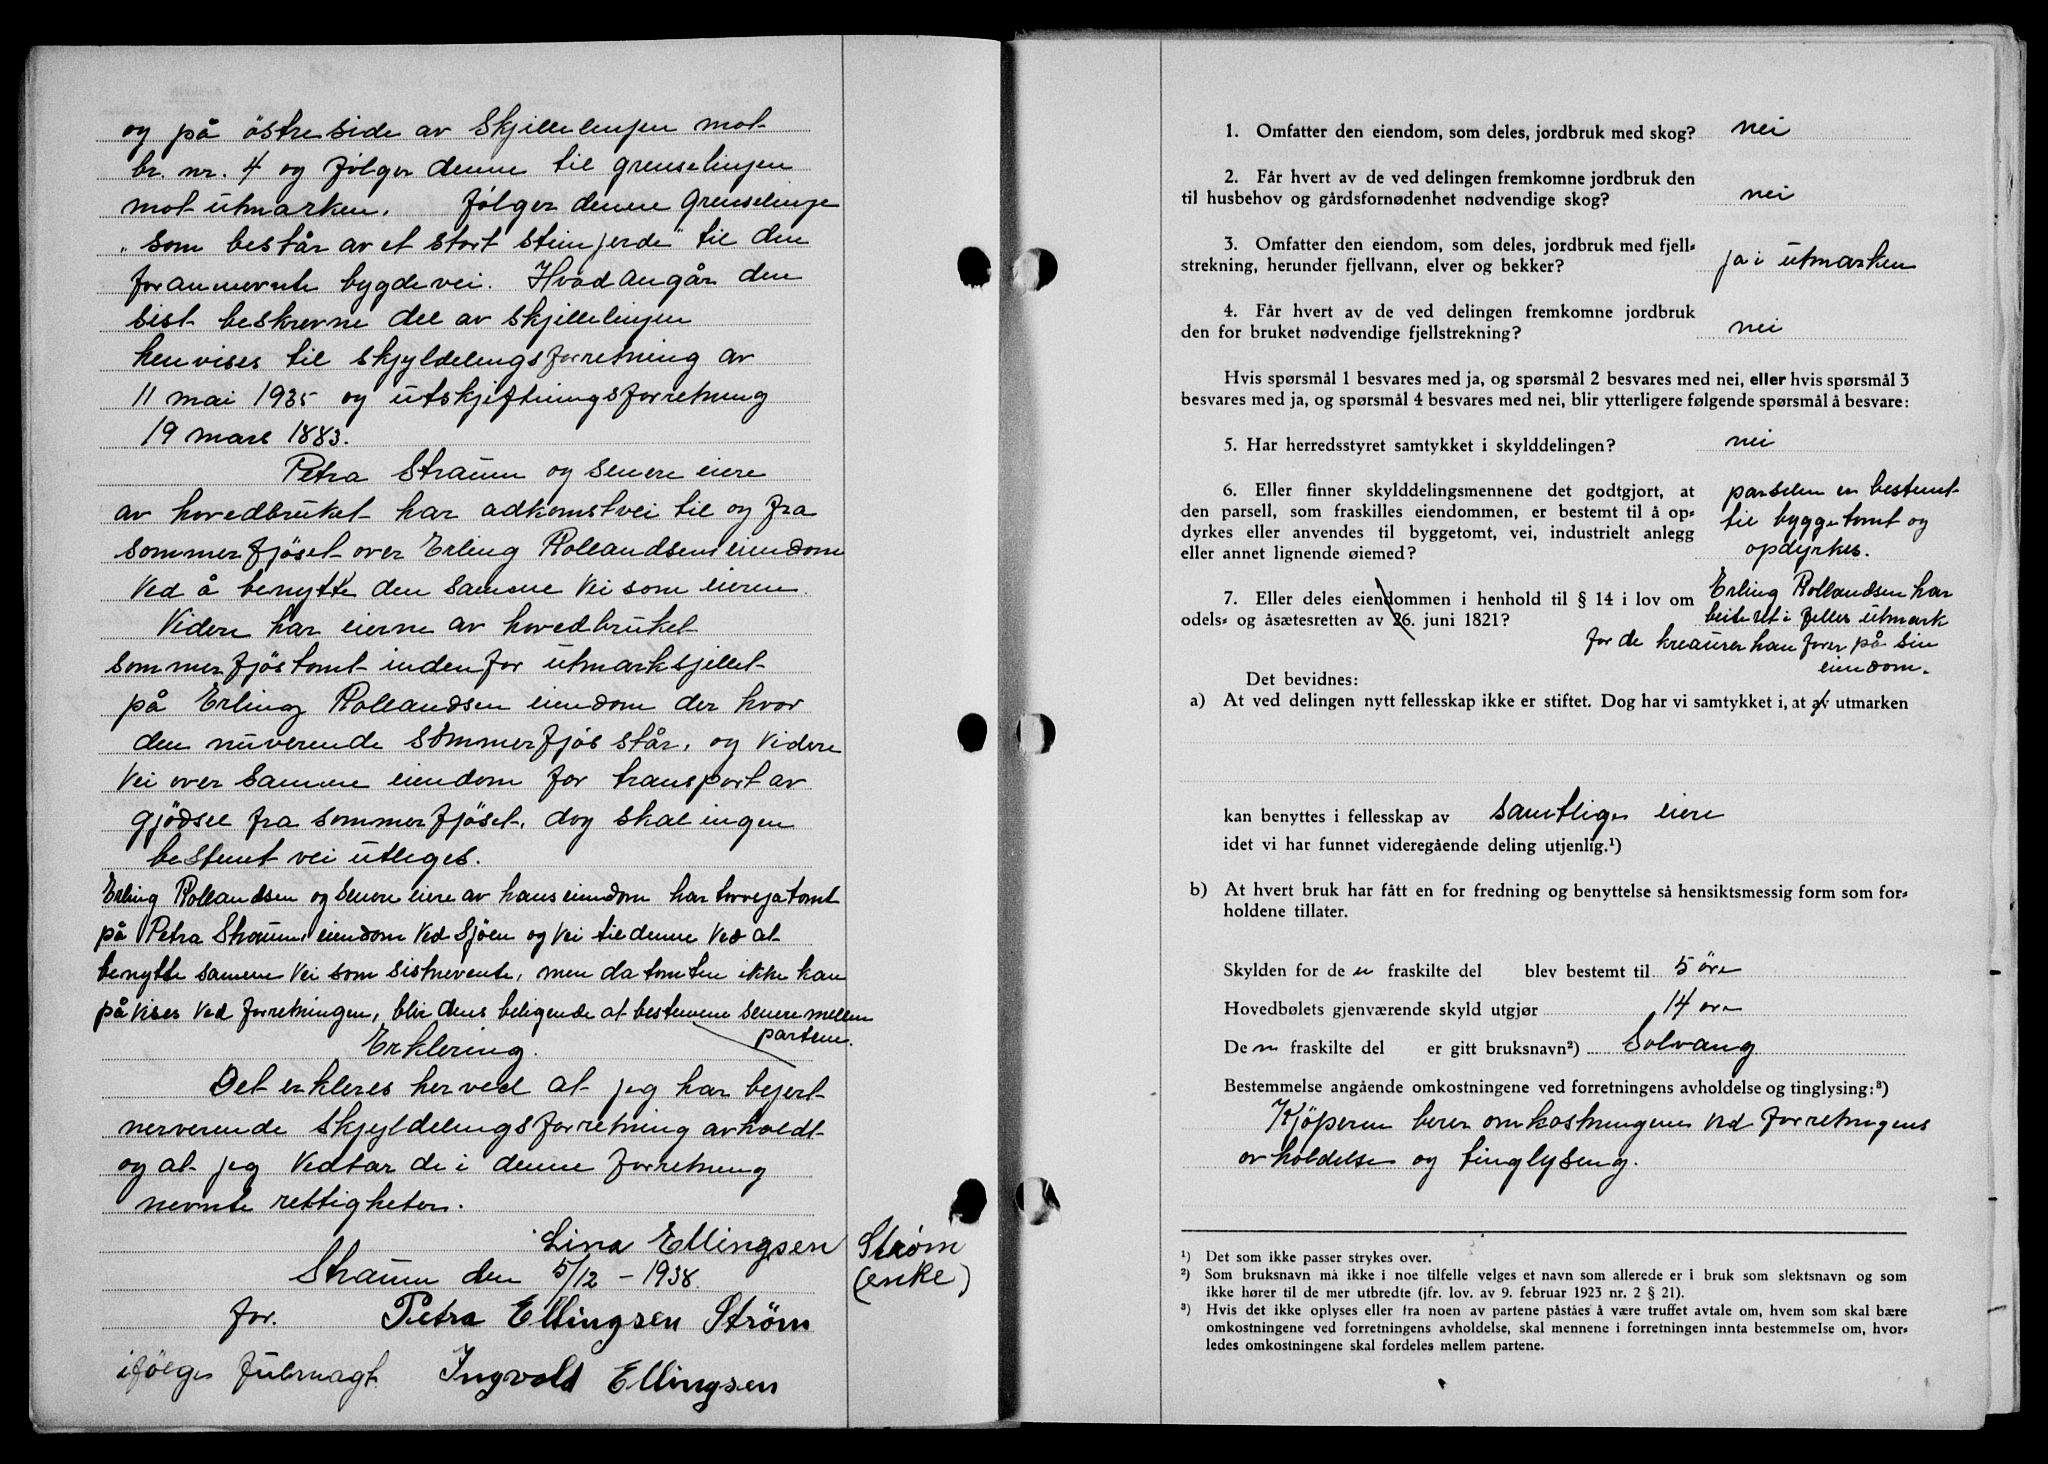 og på östre side av Skjillelinjen mot
br. nr. 4 og følger denne til grenselinjen
mot utmarken. Følger denne grenselinje
"som består av et stort steinjerde" til den
forannevnte bygdevei. Hvad angår den
sist beskrevne del av skjillelinjen
henvises til skjyldelingsforretning av
11 mai 1935 og utskjiftningsforretning
19 mars 1883.
Petra Straum og senere eiere
av hovedbruket har adkomstvei til og fra
sommerfjöset over Erling Rollandsens eiendom
ved å benytte den samme vei som eieren.
Videre har eierne av hovedbruket
sommerfjöstomt indenfor utmarksjillet
på Erling Rollandsen eiendom der hvor
den nuverende sommerfjös står, og videre
vei over samme eiendom for transport av
gjödsel fra sommerfjöset, dog skal ingen
bestemt vei utleges.
Erling Rollandsen og senere eiere av hans eiendom har torvsjåtomt
på Petra Straums eiendom ved Sjöen og vei til denne ved at
benytte samme vei som sistnevnte, men da tomten ikke kan
påvises ved forretningen, blir dens beligende at bestemme senere mellem
partene.
Erklering.
Det erkleres herved at jeg har bejert
nerverende skjyldelingsforretning avholdt
og at jeg vedtar de i denne forretning
nevnte rettigheter.
Lina Ellingsen Strøm
Straum den 5/12 - 1938. (enke)
for. Petra Ellingsen Strøm
ifölge fulmagt. Ingvald Ellingsen
1. Omfatter den eiendom, som deles, jordbruk med skog? nei
2. Får hvert av de ved delingen fremkomne jordbruk den
til husbehov og gårdsfornødenhet nødvendige skog? nei
3. Omfatter den eiendom, som deles, jordbruk med fjell-
strekning, herunder fjellvann, elver og bekker? ja i utmarken
4. Får hvert av de ved delingen fremkomne jordbruk
den for bruket nødvendige fjellstrekning? nei
Hvis spørsmål 1 besvares med ja, og spørsmål 2 besvares med nei, eller hvis spørsmål 3
besvares med ja, og spørsmål 4 besvares med nei, blir ytterligere følgende spørsmål å besvare:
5. Har herredsstyret samtykket i skylddelingen? nei
6. Eller finner skylddelingsmennene det godtgjort, at parselen er bestemt
den parsell, som fraskilles eiendommen, er bestemt til å op- til byggetomt og
dyrkes eller anvendes til byggetomt, vei, industrielt anlegg opdyrkes.
eller annet lignende øiemed?
7. Eller deles eiendommen i henhold til § 14 i lov om Erling Rollandsen har
odels- og åsætesretten av 26. juni 1821? beiteret i felles utmark
for de kreaurer han forer på sin
eiendom.
Det bevidnes:
a) At ved delingen nytt fellesskap ikke er stiftet. Dog har vi samtykket i, at av utmarken
kan benyttes i fellesskap av samtlige eiere
idet vi har funnet videregående deling utjenlig.¹)
b) At hvert bruk har fått en for fredning og benyttelse så hensiktsmessig form som for-
holdene tillater.
Skylden for de n fraskilte del blev bestemt til 5 öre
Hovedbølets gjenværende skyld utgjør 14 öre
De n fraskilte del er gitt bruksnavn²) Solvang
Bestemmelse angående omkostningene ved forretningens avholdelse og tinglysing:³)
Kjöperen berer omkostningene ved forretnigens
avholdelse og tinglyseng.
¹) Det som ikke passer strykes over.
²) Som bruksnavn må ikke i noe tilfelle velges et navn som allerede er i bruk som slektsnavn og som
ikke hører til de mer utbredte (jfr. lov. av 9. februar 1923 nr. 2 § 21).
³) Hvis det ikke oplyses eller fra noen av partene påståes å være truffet avtale om, hvem som skal bære
omkostningene ved forretningens avholdelse, skal mennene i forretningen innta bestemmelse om, hvor-
ledes omkostningene skal fordeles mellem partene.